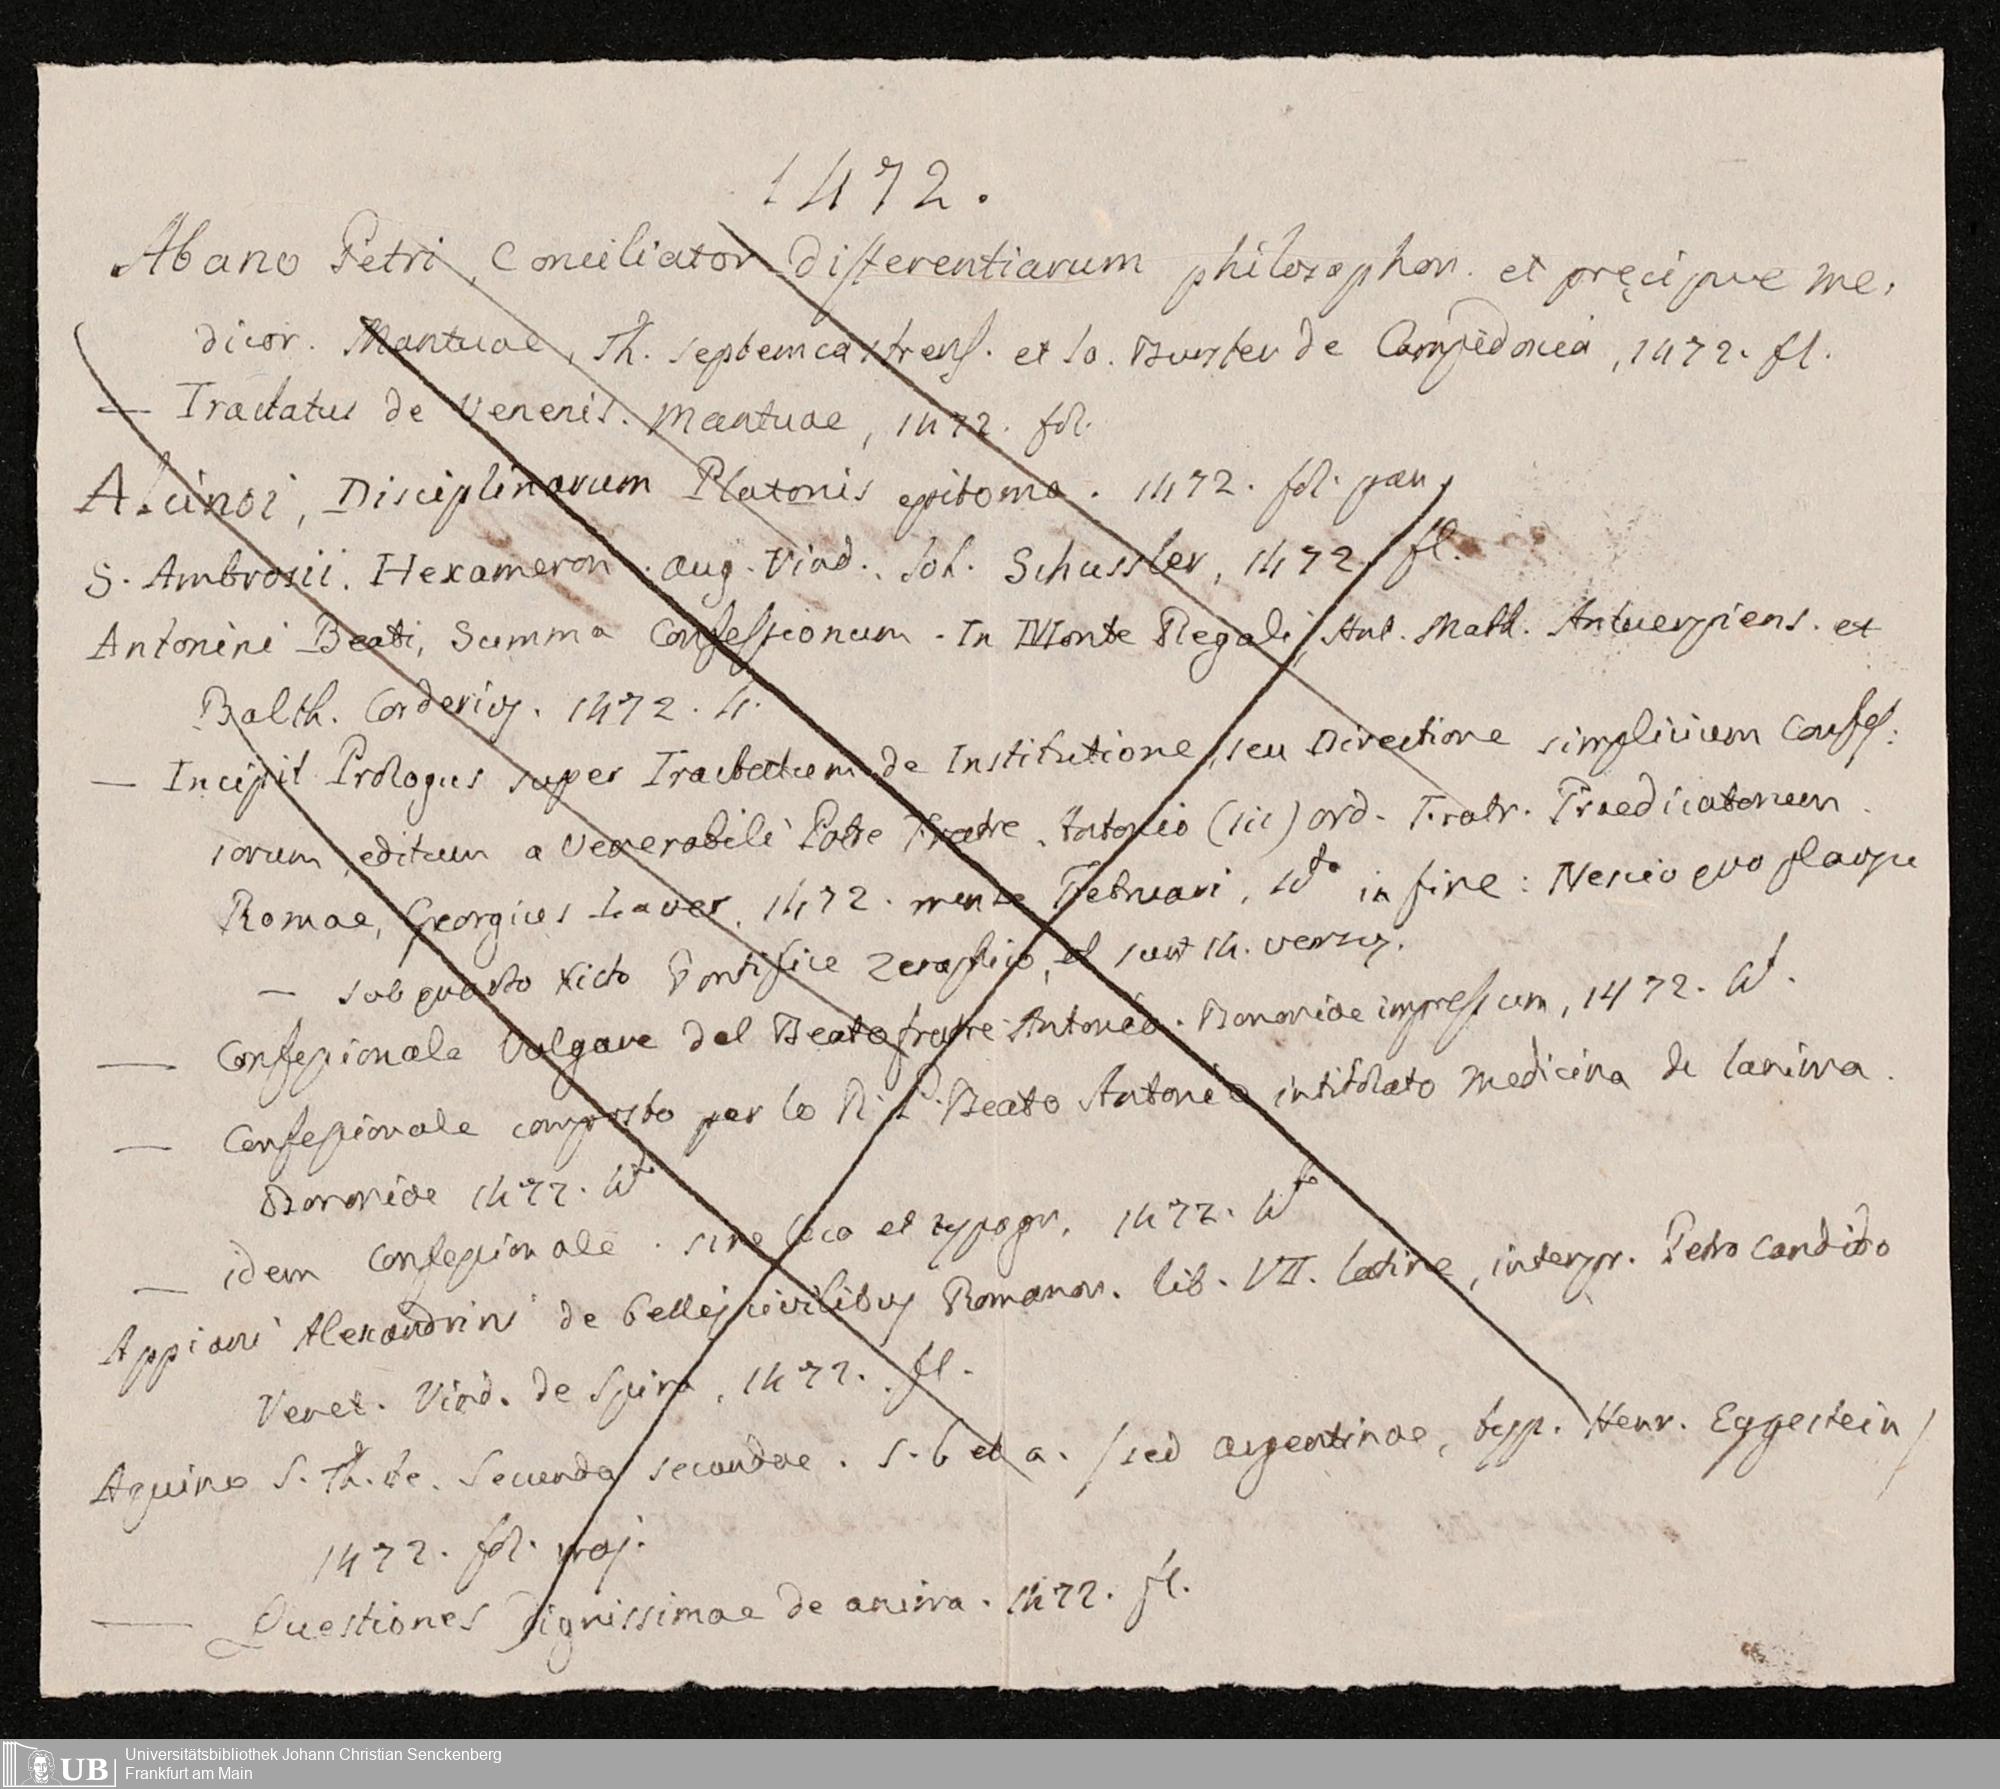 1472.
Abano Petri, Conciliator differentiarum philosophor. et pręcipue me,
dicor. Mantuae, Th. septemcastrens. et Io. Burster de Campidonia, 1472. fl.
— Tractatus de Venenis. Mantuae, 1472. fol.
Alcinoi, Disciplinarum Platonis epitoma. 1472. fol. parv.
S. Ambrosii. Hexameron. Aug. Vind. Joh. Schussler, 1472. fl.
Antonini Beati, Summa Confessionum. In Monte Regali, Ant. Math. Antuerpiens. et
Balth. Corderius. 1472. 4.
— Incipit Prologus super Tractatum de Institutione, seu Directione simplicium Confes:
sorum, editum a Venerabili Patre Fratre Antonio (sic) ord. Fratr. Praedicatorum.
Romae, Georgius Laver, 1472. mense Februari, 4to in fine: Nescio quo
— sub quarto Xicto Pontifice et sunt 14. versus.
— Confessionale Volgare del Beato fratre Antonio. Bononiae impressum, 1472. 4t.
— Confessionale composto per lo R. P. Beato Antonio intitolato Medicina de lanima.
Bononiae 1472. 4to
— idem Confessionale. sine loco et typogr. 1472. 4to
Appiani Alexandrini de bellis civilibus Romanor. lib. VII. latine, interpr. Petro Candido
Venet. Vind. de Spira, 1472. fl.
Aquino S. Th. de. Secunda secundae. S. l et a. /sed Argentinae, typ. Henr. Eggestein/
1472. fol. maj.
— Questiones Dignissimae de anima. 1472. fl.
UB Universitätsbibliothek Johann Christian Senckenberg
Frankfurt am Main